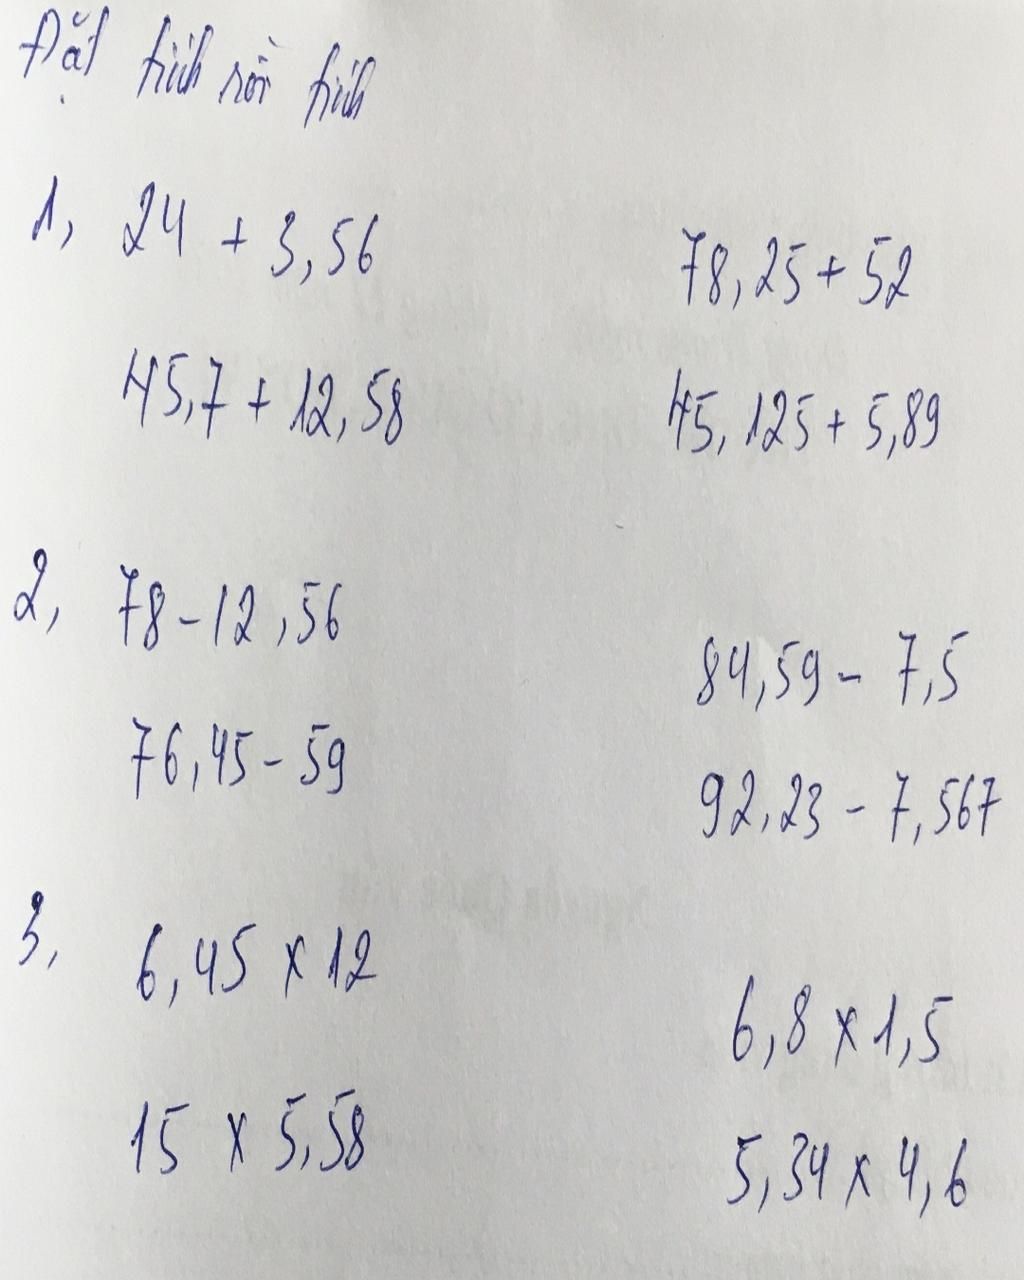 Đặt tính rồi tính
1, 24 + 3,56
78,25 + 52
45,7 + 12,58
45,125 + 5,89
2, 78 - 12,56
84,59 - 7,5
76,45 - 59
92,23 - 7,567
3, 6,45 x 12
6,8 x 1,5
15 x 5,58
5,34 x 4,6